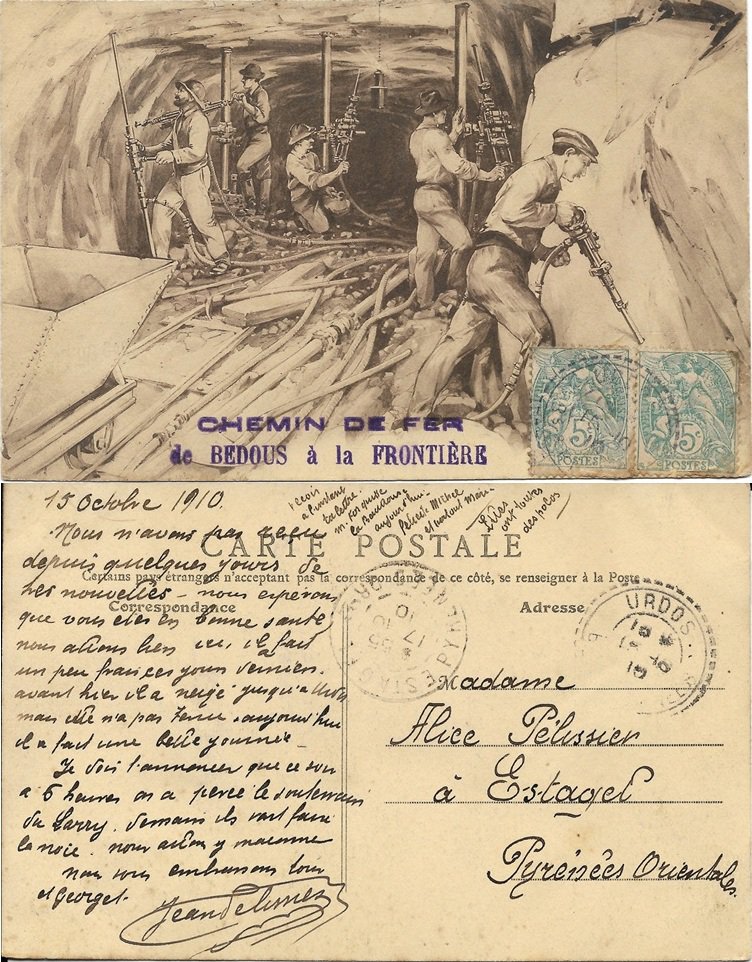 CHEMIN DE FER
de BEDOUS à la FRONTIÈRE
5c 5c
POSTES POSTES
15 Octobre 1910.
Nous n'avons pas reçu
depuis quelques jours de
tes nouvelles - nous espérons
que vous etes en bonne santé
nous allons bien ici, il fait
un peu frais ces jours derniers
avant hier il a neigé jusqu'a Urdos
mais elle n'a pas tenue. aujourd'hui
il a fait une belle journée -
Je dois t'annoncer que ce soir
a 6 heures on a percé le souterrain
du Larry. demain ils vont faire
la noce. nous allons y
nous vous embrassons tous
et Georget.
reçois
a l'instant
ta lettre.
aujourd'hui
CARTE POSTALE
Certains pays étrangers n'acceptent pas la correspondance de ce côté, se renseigner à la Poste
Correspondance
Adresse
ESTAGEL
17 10
URDOS
Madame
Alice Pélissier
à Estagel
Pyrénées Orientales.